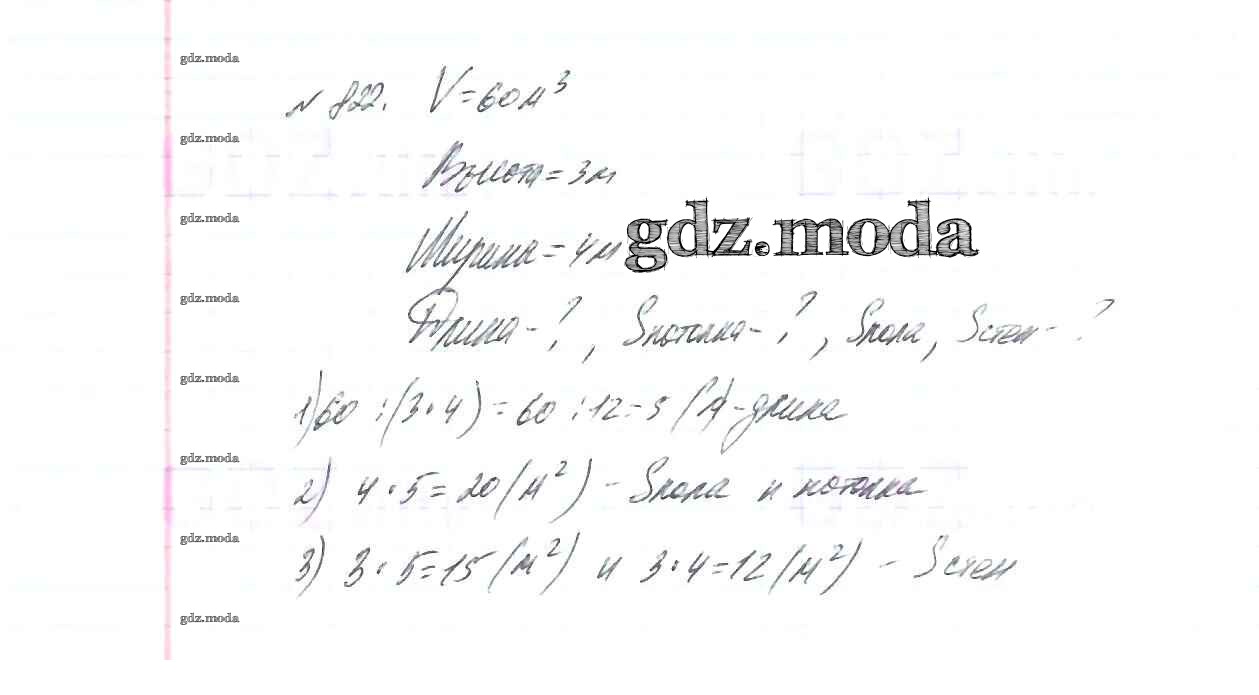 gdz.moda
№ 822. V = 60 м³
gdz.moda
Высота = 3 м
gdz.moda
Ширина = 4 м gdz.moda
gdz.moda
Длина - ?, Sпотолка - ?, Sпола, Sстен - ?
gdz.moda
1) 60 : (3 · 4) = 60 : 12 = 5 (м) - длина
gdz.moda
2) 4 · 5 = 20 (м²) - Sпола и потолка
gdz.moda
3) 3 · 5 = 15 (м²) и 3 · 4 = 12 (м²) - Sстен
gdz.moda